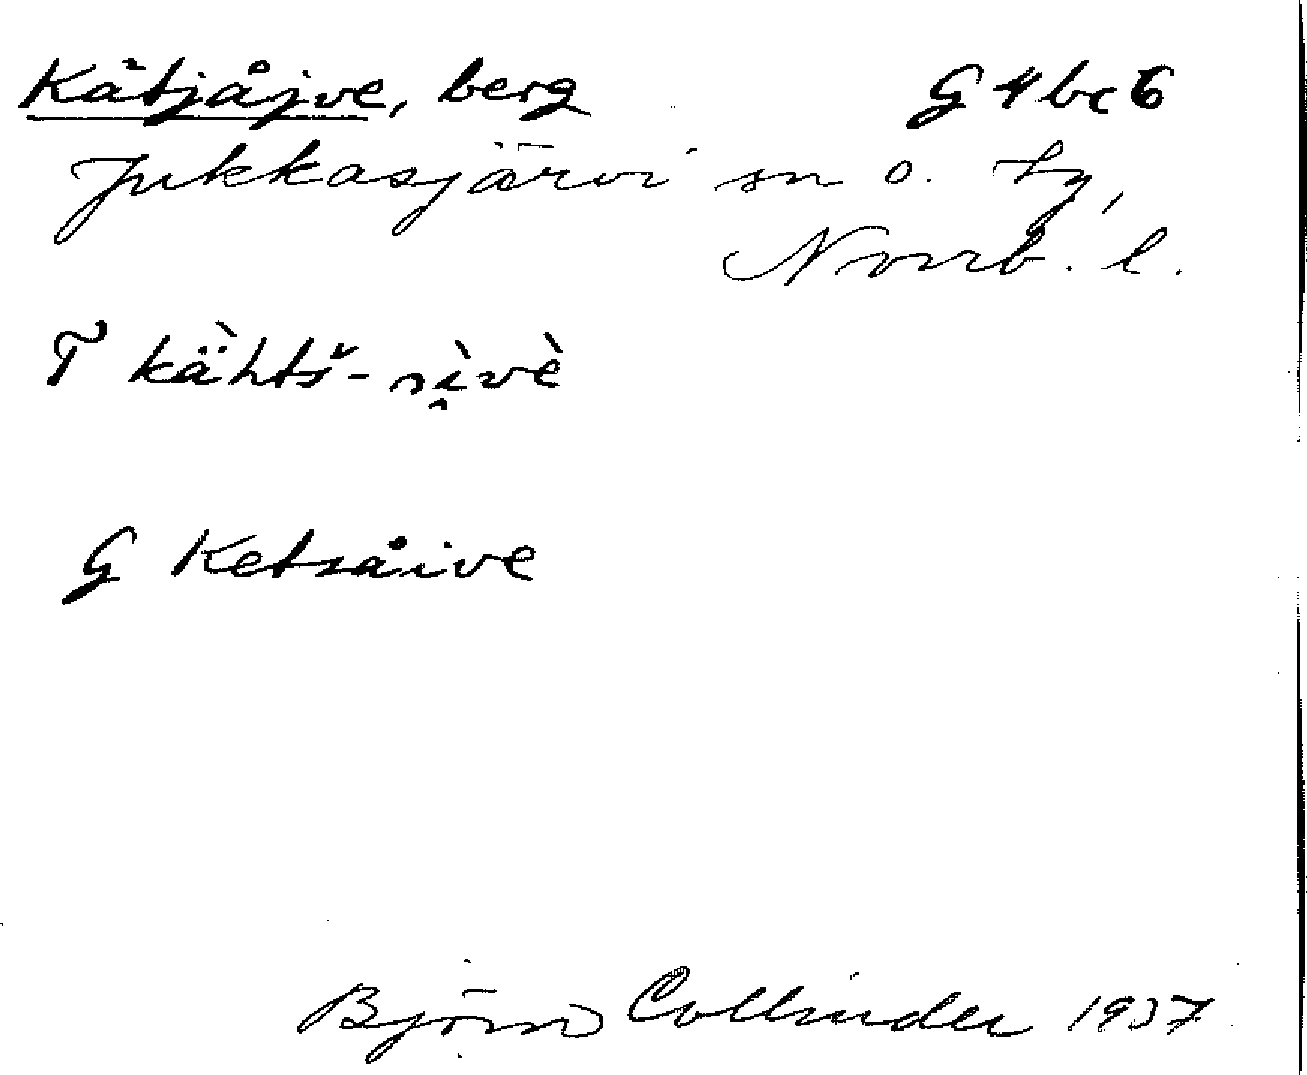 Kätjåjve, berg G 4 bc 6
Jukkasjärvi sn o. tg,
Norrb. l.
T kä̀htš̌-ɒì̭vè
G Ketsåive
Björn Collinder 1937